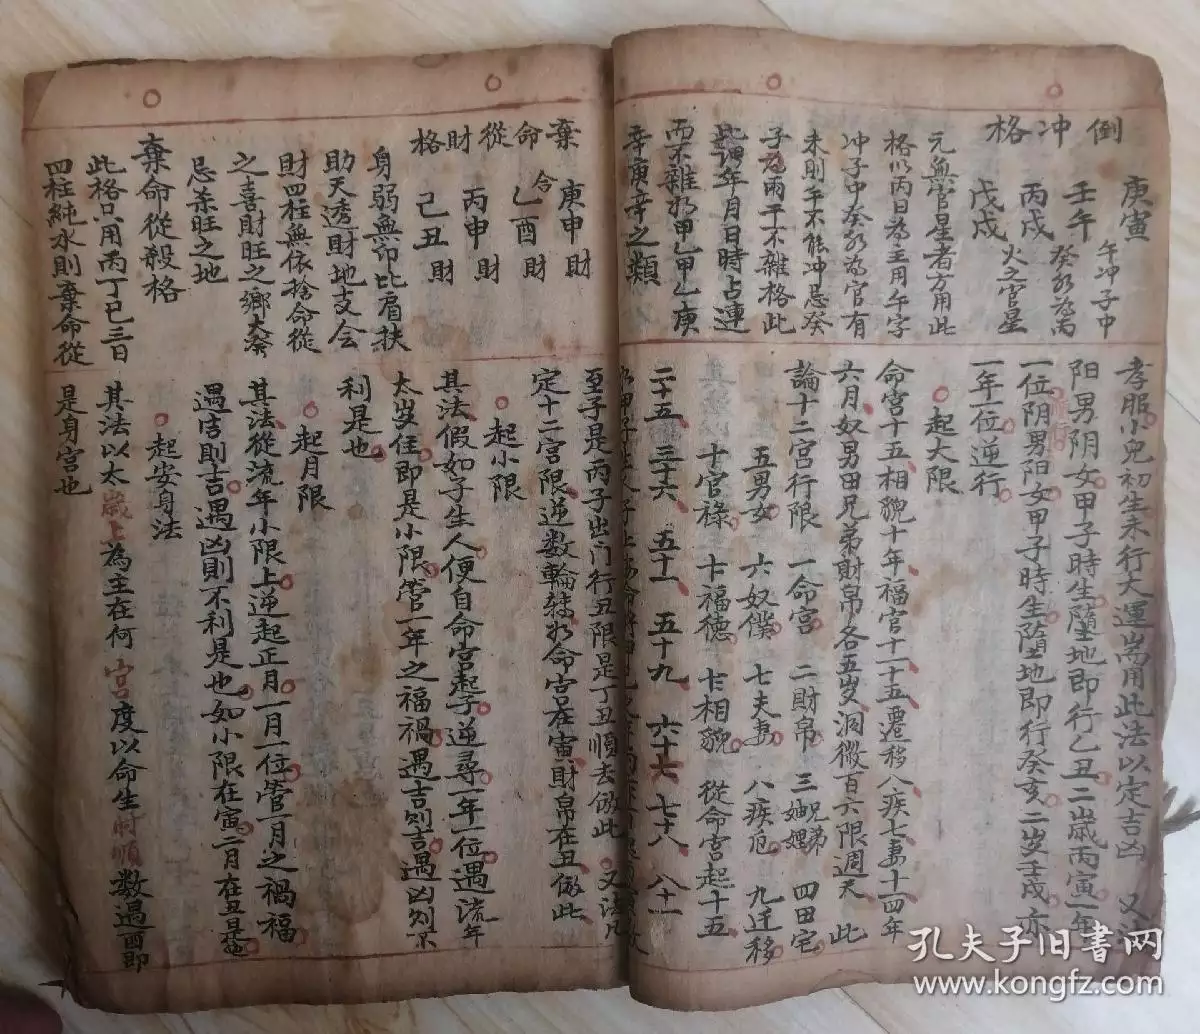 倒冲格
庚寅
壬午 午冲子中
丙戌 癸水為丙
戊戌 火之官星
元無官星者方用此
格以丙日為主用午字
冲子中癸水為官有
未則午不能冲忌癸
子為兩干不雜格此
此謂年月日時占連
而不雜如甲乙甲乙庚
辛庚辛之類
孝服小兒初生未行大運耑用此法以定吉凶 又法
阳男阴女甲子時生墮地即行乙丑二歲丙寅一年
一位阴男阳女甲子時生墮地即行癸亥二岁壬戌亦
一年一位逆行
起大限
命宮十五相貌十年福官十一十五遷移八疾七妻十四年
六月奴男田兄弟財帛各五岁洞微百六限週天 此
論十二宮行限 一命宮 二財帛 三兄弟妯娌 四田宅
五男女 六奴僕 七夫妻 八疾厄 九迁移
十官祿 十一福德 十二相貌 從命宮起十五
二十五 三十六 五十一 五十九 六十七 七十八 八十一
棄命從財格
庚申 財
乙酉 財
丙申 財
己丑 財
身弱無印比肩扶
助天透財地支会
財四柱無依捨命從
之喜財旺之鄉大發
忌杀旺之地
棄命從殺格
此格只用丙丁巳三日
四柱純水則棄命從
至子是丙子出门行丑限是丁丑順去倣此 又法凡
定十二宮限逆数輪轉如命宮在寅財帛在丑倣此
起小限
其法假如子生人便自命宮起子逆尋一年一位遇流年
太岁住即是小限管一年之福禍遇吉則吉遇凶則不
利是也
起月限
其法從流年小限上逆起正月一月一位管一月之禍福
遇吉則吉遇凶則不利是也如小限在寅二月在丑是也
起安身法
其法以太歲上為主在何宮度以命生時順数遇酉即
是身宮也
孔夫子旧書网
www.kongfz.com